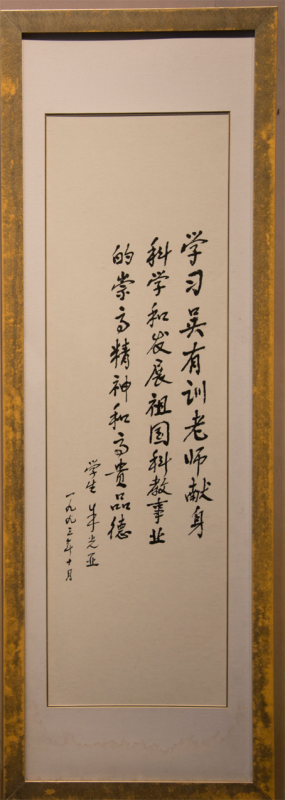 学习吴有训老师献身
科学和发展祖国科教事业
的崇高精神和高贵品德
学生 朱光亚
一九九三年十月